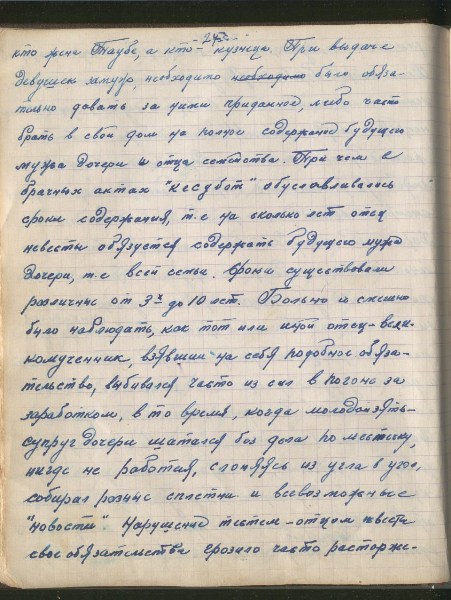 245.
кто жена Таубе, а кто - кузнеца. При выдаче
девушек замуж, необходимо необходимо было обяза-
тельно давать за ними приданное, либо часто
брать в свой дом на полное содержание будущего
мужа дочери и отца семейства. При чем в
брачных актах "кесубот" обуславливались
сроки содержания, т.е на сколько лет отец
невесты обязуется содержать будущего мужа
дочери, т.е всей семьи. Сроки существовали
различные от 3х до 10 лет. Больно и смешно
было наблюдать, как тот или иной отец-вели-
комученник, взявший на себя подобное обяза-
тельство, выбивался часто из сил в погоне за
заработком, в то время, когда молодой зять-
супруг дочери шатался без дела по местечку,
нигде не работая, слоняясь из угла в угол,
собирая разные сплетни и всевозможные
"новости". Нарушение тестем-отцом невесты
свое обязательства грозило часто расторже-